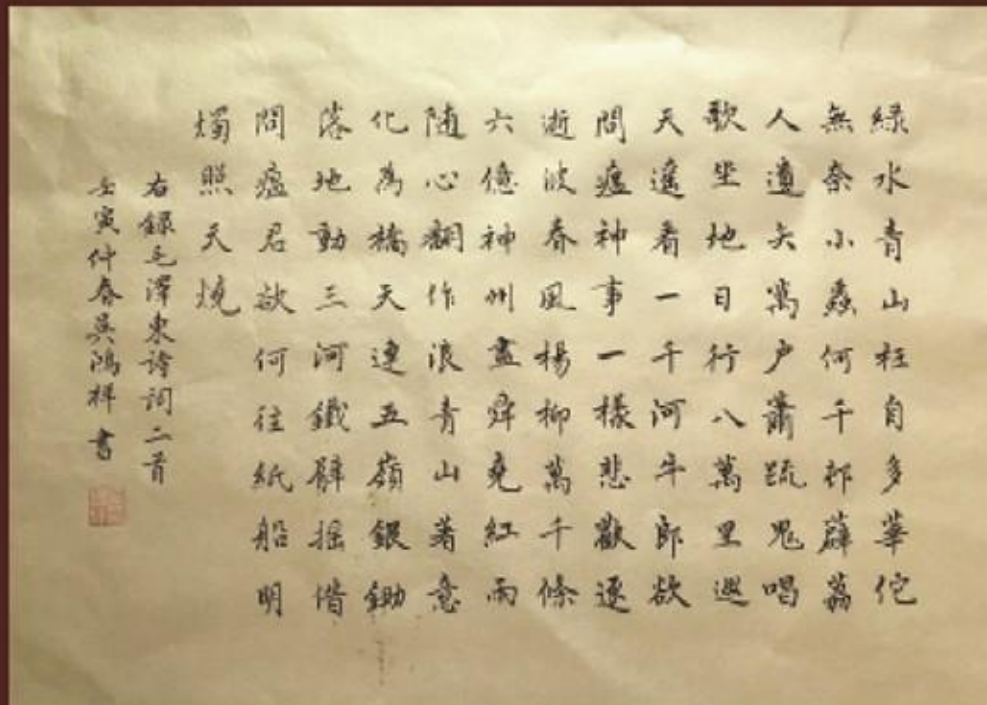 綠水青山枉自多華佗
無奈小蟲何千邨薜荔
人遺矢萬户蕭疏鬼唱
歌坐地日行八萬里巡
天遥看一千河牛郎欲
問瘟神事一樣悲歡逐
逝波春風楊柳萬千條
六億神州盡舜堯紅雨
随心翻作浪青山著意
化為橋天連五嶺銀鋤
落地動三河鐵臂搖借
問瘟君欲何往紙船明
燭照天燒
右録毛澤東詩詞二首
壬寅仲春吳鴻祥書